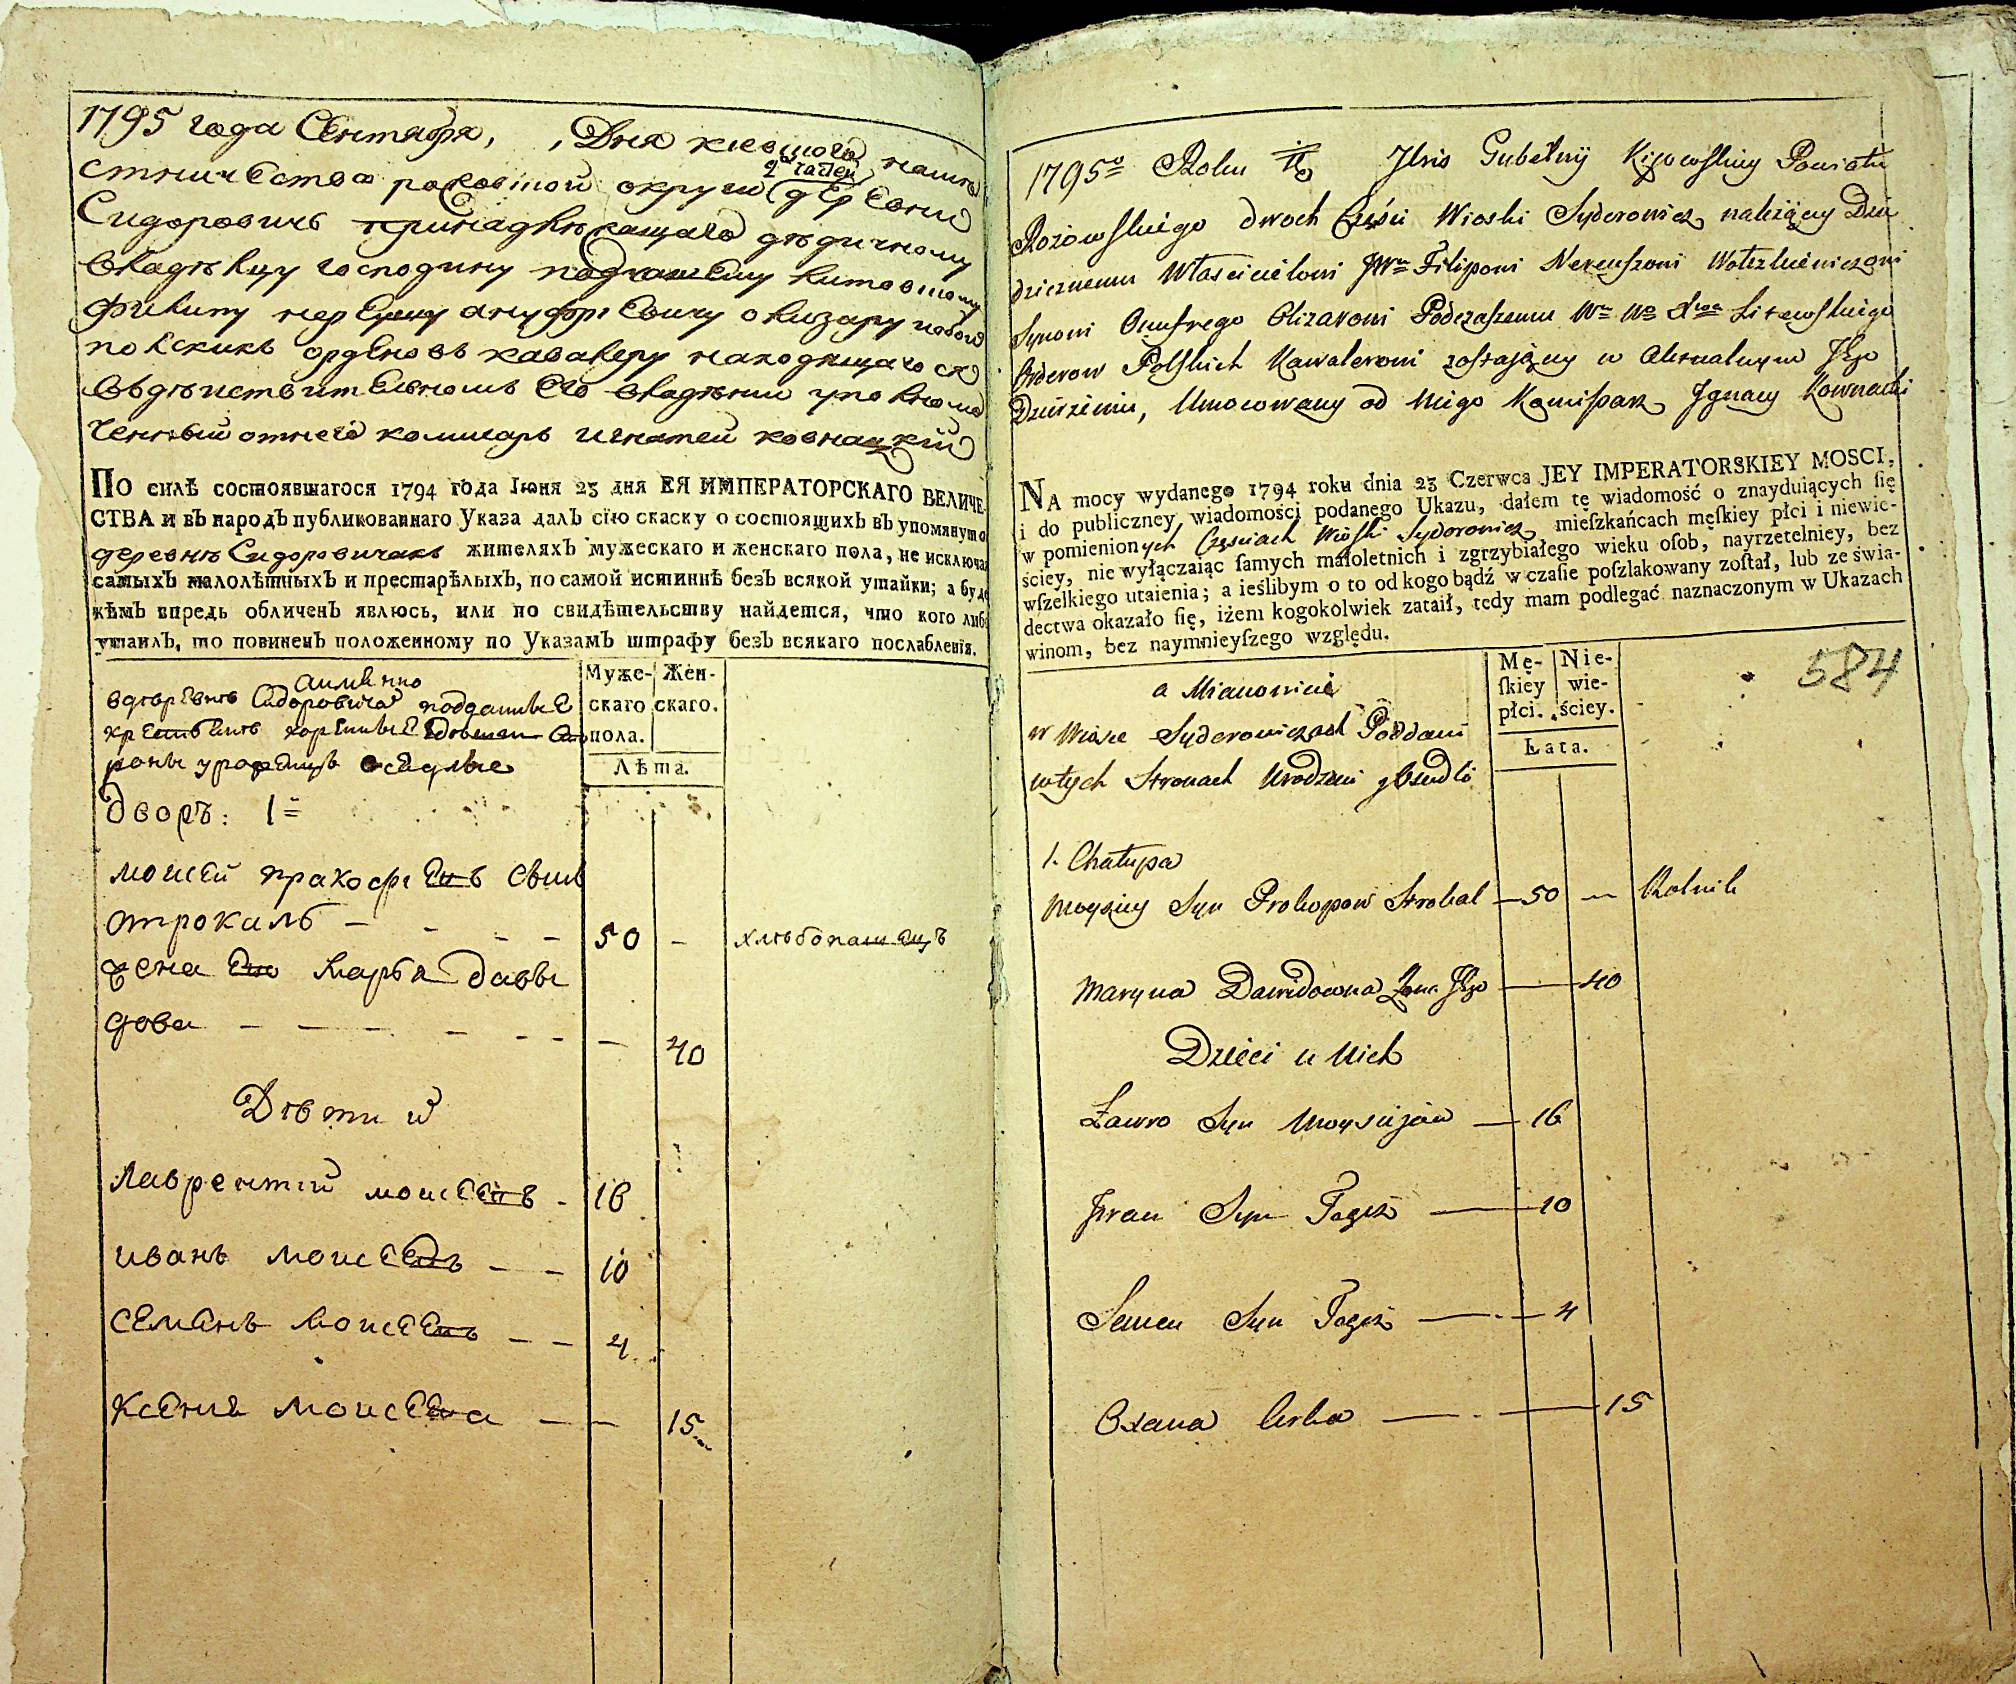 1795 года Сентября, , Дня киевского намѣ
стничества роковской округи 2х частей деревни
Сидоровичь принадлежащаго дѣдичному
владѣлцу господину подчашему литовскому
Филипу нерЕушу ануфрiЕвичу олизару
полскихъ орденовъ кавалеру находящаго ся
въдѣиствителномъ Его владѣнии уполномо
ченный отнего комисаръ игнатей ковнацкiй
ПО силѣ состоявшагося 1794 года Iюня 23 дня ЕЯ ИМПЕРАТОРСКАГО ВЕЛИЧЕ-
СТВА и въ народъ публикованнаго Указа далъ сїю скаску о состоящихъ въ упомянуто
деревнѣ Сидоровичахъ жителяхъ мужескаго и женскаго пола, не исключа
самыхъ малолѣтныхъ и престарѣлыхъ, по самой истиннѣ безъ всякой утайки; а буде
кѣмъ впредь обличенъ явлюсь, или по свидѣтельству найдется, что кого либо
утаилъ, то повиненъ положенному по Указамъ штрафу безъ всякаго послабленїя.
аимѣнно
вдѣрѣвнѣ Сидоровича подданные
Муже-
скаго
пола.
Жен-
скаго.
Лѣта.
дворъ: 1=
моисей пракофiевъ сынъ
строкалъ - - - - 50 - хлѣбопашецъ
жена Его марья давы
дова - - - - - - - 40
Дѣти й
лаврентий моисеевъ - 16
иванъ моисеевъ - - 10
семенъ моисеевъ - - 4
ксения моисеева - - 15
1795º Roku Jhris Guberny Kijowskiey Powiatu
Rożowskiego dwoch Części Wioski Syderowicz należący Dzie
dzicznemu Właścicielowi JWu Filiponi Nereuszoni Wotszkieniczoni
Synowi Onufrego Olizarowi Podczaszemu Litewskiego
Orderow Polskich Kawalerowi zostaiący w aktualnym Jego
Dzierżeniu, Umocowany od niego Komisarz Jgnacy Kownacki
NA mocy wydanego 1794 roku dnia 23 Czerwca JEY IMPERATORSKIEY MOSCI,
i do publiczney wiadomości podanego Ukazu, dałem tę wiadomość o znayduiących ſię
w pomienionych Częsciach Wioski Syderowicz mieſzkańcach męſkiey płci i niewie-
ściey, nie wyłączaiąc ſamych małoletnich i zgrzybiałego wieku oſob, nayrzetelniey, bez
wſzelkiego utaienia; a ieślibym o to od kogo bądź w czaſie poſzlakowany zoſtał, lub ze świa-
dectwa okazało ſię, iżem kogokolwiek zataił, tedy mam podlegać naznaczonym w Ukazach
winom, bez naymnieyſzego względu.
584
a Mianowicie
w Wiosce Syderowiczach Poddani
wtych Stronach Urodzeni y Osiedli
Mę-
ſkiey
płci.
Nie-
wie-
ściey.
Łata.
1. Chałupa
Moyziey Syn Prokopow Strokal — 50 — Rolnik
Maryna Dawidowna Żona Jego — 40
Dzieci u Nich
Ławro Syn Moysiejow — 16
Jwan Syn Tegoż — 10
Semen Syn Tegoż — 4
Oxana Corka — 15